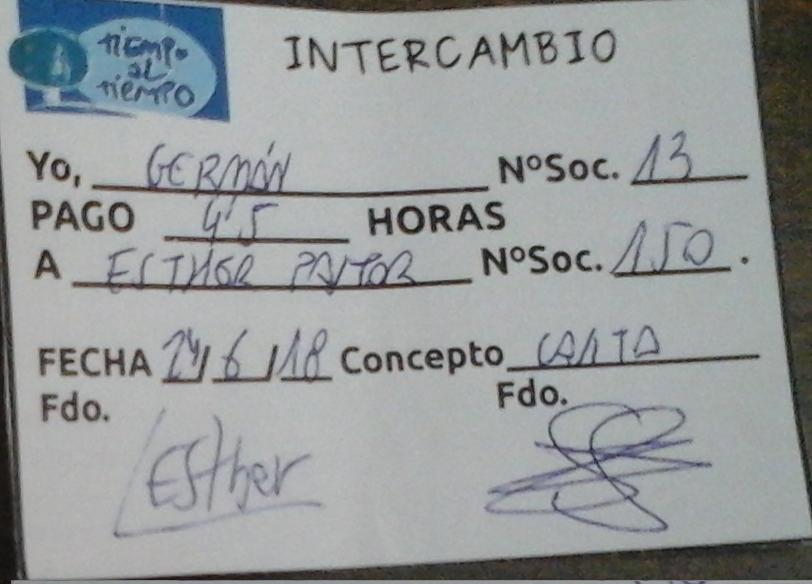 TIEMPO
AL
TIEMPO
INTERCAMBIO
Yo, GERMÁN NºSoc. 13
PAGO 4'5 HORAS
A ESTHER PASTOR NºSoc. 150.
FECHA 24/6/18 Concepto
Fdo. Fdo.
Esther